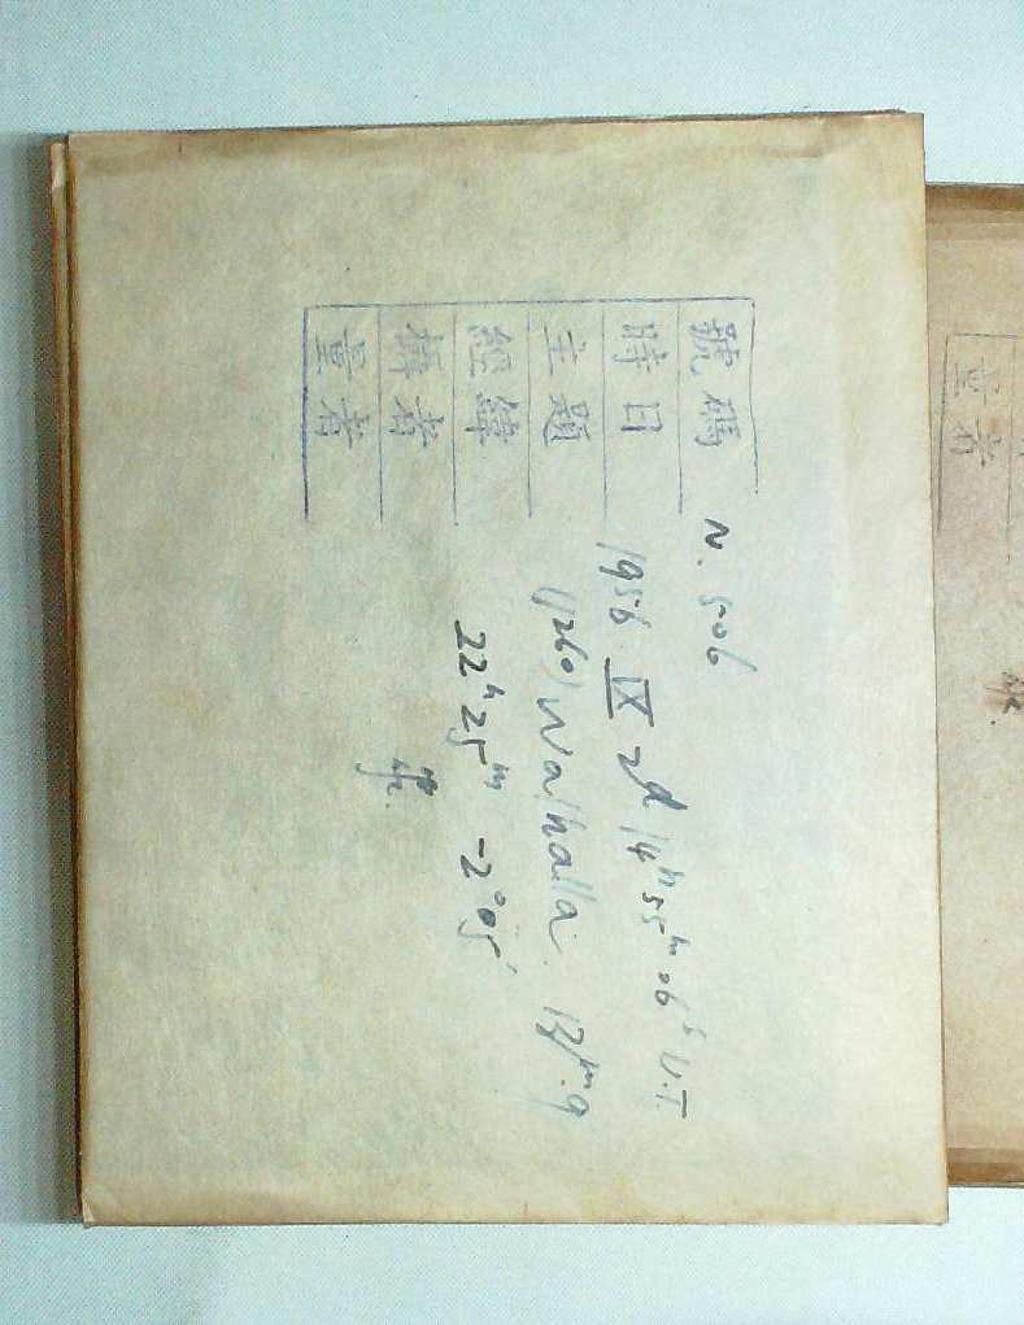 號碼 N. 506
時日 1956 IX 2d 14h 55m 06s U.T.
主題 (1260) Walhalla. 13m.9
經緯 22h 25m -2°05'
攝者
量者
量者